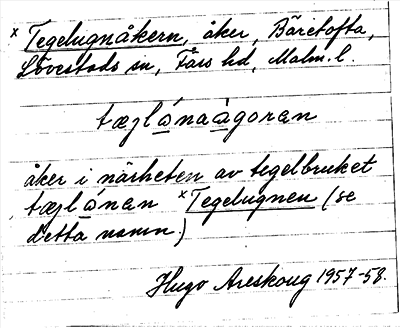 x Tegelugnåkern, åker, Bäretofta,
Lövestads sn, Färs hd, Malm. l.
tæjlǫ́naågoran
åker i närheten av tegelbruket
tæjlǫ́nan x Tegelugnen (se
detta namn)
Hugo Areskoug 1957-58.